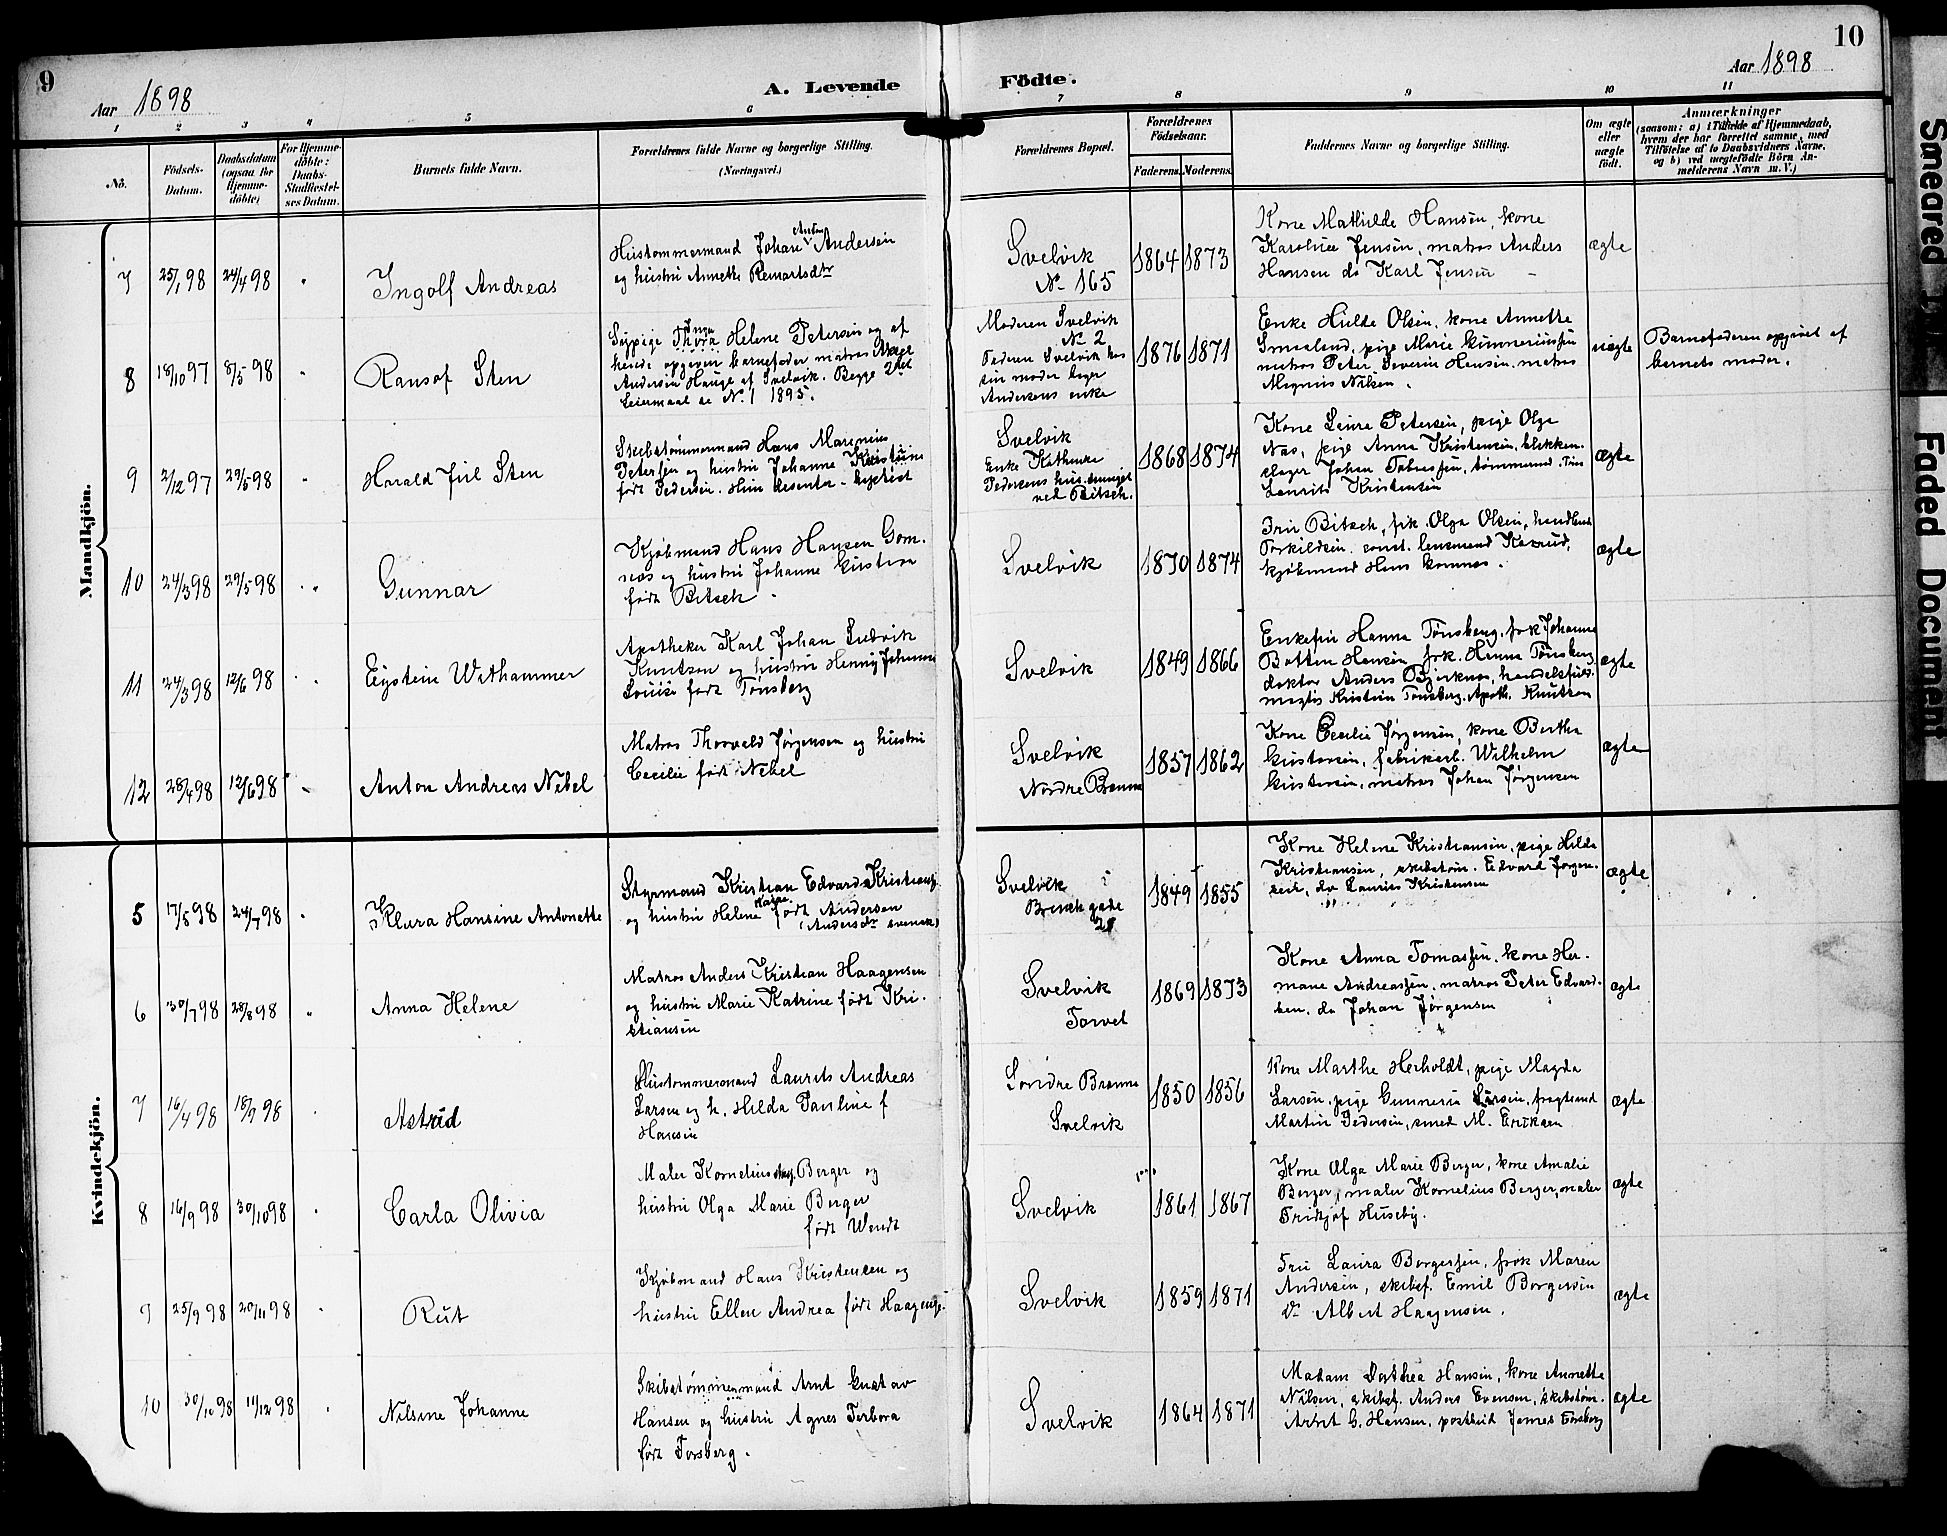 9
Aar 1898
A. Levende
Födte.
Aar 1898
10
1 2 3 4 5 6 7 8 9 10 11
No.
Födsels-
Datum.
Daabsdatum
(ogsaa for
Hjemme-
döbte)
For Hjemme-
döbte:
Daabs-
Stadfæstel-
ses Datum.
Barnets fulde Navn.
Forældrenes fulde Navne og borgerlige Stilling.
(Næringsvei.)
Forældrenes Bopæl.
Forældrenes
Födselsaar.
Faderens.
Moderens.
Faddernes Navne og borgerlige Stilling.
Om ægte
eller
uægte
födt.
Anmærkninger
(saasom: a) i Tilfælde af Hjemmedaab,
hvem der har forrettet samme, med
Tilföielse af to Daabsvidners Navne,
og b) ved uægtefödte Börn An-
melderens Navn m. V.)
Mandkjön.
7
25/1 98
24/4 98
Ingolf Andreas
Anton
Hustommermand Johan Andersen
og hustru Annette
Svelvik
No 165
1864
1873
Kone Mathilde Hansen, kone
Karoline Jensen, matros Anders
Hansen do Karl Jensen
ægte
8
18/10 97
8/5 98
Sten
Sypige Thora Helene Petersen og af
hende opgiven barnefader matros
Andersen Hauge af Svelvik. Begge 2det
Leiermaal se No 1 1895.
Moderen Svelvik
No 2
Faderen Svelvik hos
sin moder
Andersens enke
1876
1871
Enke Hulda Olsen, kone Annette
Smaalend, pige Marie
matros Peter Severin Hansen, matros
Magnus Nilsen.
uægte
Barnefaderen opgivet af
barnets moder.
9
2/12 97
29/5 98
Harald Juel Sten
Skibstømmermand Hans Marenius
Petersen og hustru Johanne Kristine
født Pedersen.
Svelvik
Enke
Pedersens hus
ved Bitsch.
1868
1874
Kone Laura Petersen, pige Olga
Næs, pige Anna Kristensen, blikken-
slager Johan Tobiassen, tømmermand
Laurits Kristensen
ægte
10
24/3 98
29/5 98
Gunnar
Kjøbmand Hans Hansen Gom-
næs og hustru Johanne Kristine
født Bitsch.
Svelvik
1870
1874
Fru Bitsch, frk. Olga Olsen,
const. lensmand
kjøbmand Hans
ægte
11
24/3 98
12/6 98
Eystein Withammer
Apotheker Karl Johan Ludvik
Knutzon og hustru Henny Johanne
Louise født Tønsberg
Svelvik
1849
1866
Enkefru Hanna Tønsberg, frk Johanne
Botten Hansen, frk. Hanna Tønsberg
doktor Anders Bjerknes, handelsfuld-
mægtig Kristian Tønsberg, Apoth. Knutzon
ægte
12
28/4 98
12/6 98
Anton Andreas Nebel
Matros Thorvald Jørgensen og hustru
Cecilie født Nebel
Svelvik
Nordre Brenna
1857
1862
Kone Cecilie Jørgensen, kone Berthe
Gustavsen, fabrikarb. Wilhelm
Gustavsen, matros Johan Jørgensen
ægte
Kvindekjön.
5
17/5 98
24/7 98
Klara Hansine Antonette
Styrmand Kristian Edvard Kristiansen
og hustru Helene født Andersen
(Andersdtr svensk)
Svelvik
gade
1849
1855
Kone Helene Kristiansen, pige Hilda
Kristiansen, skibstøm. Edvard Jørgen-
sen, do Laurits Kristensen
ægte
6
30/7 98
28/8 98
Anna Helene
Matros Anders Kristian Haagensen
og hustru Marie Katrine født Kri-
stiansen
Svelvik
Torvet
1869
1873
Kone Anna Tomassen, kone Her-
mane Andreassen, matros Peter Edvard-
sen, do Johan Jørgensen
ægte
7
16/4 98
18/9 98
Astrid
Hustømmermand Laurits Andreas
Larsen og h. Hilda Pauline f
Hansen
Søndre Brenna
Svelvik
1850
1856
Kone Marthe Herholdt, pige Magda
Larsen, pige Gunneria Larsen, fragtemand
Martin Pedersen, smed M. Eriksen
ægte
8
16/9 98
30/10 98
Carla Olivia
Maler Kornelius Berger og
hustru Olga Marie Berger
født Wendt
Svelvik
1861
1867
Kone Olga Marie Berger, kone Amalie
Berger, maler Kornelius Berger, maler
Fridtjof Huseby.
ægte
9
25/9 98
20/11 98
Rut
Kjøbmand Hans Kristensen og
hustru Ellen Andrea født Haagensen.
Svelvik
1859
1871
Fru Laura Borgersen, frøk Maren
Andersen, skibsf. Emil Borgersen
do Albert Haagensen.
ægte
10
30/10 98
11/12 98
Nilsine Johanne
Skibstømmermand Arnt Gustav
Hansen og hustru Agnes Terbora
født Forsberg.
Svelvik
1864
1871
Madam Dorthea Hansen, kone Annette
Nilsen, skibsf. Anders Evensen, skibstøm.
Arnt G. Hansen, postbud Forsberg
ægte
Smeared
Faded Document